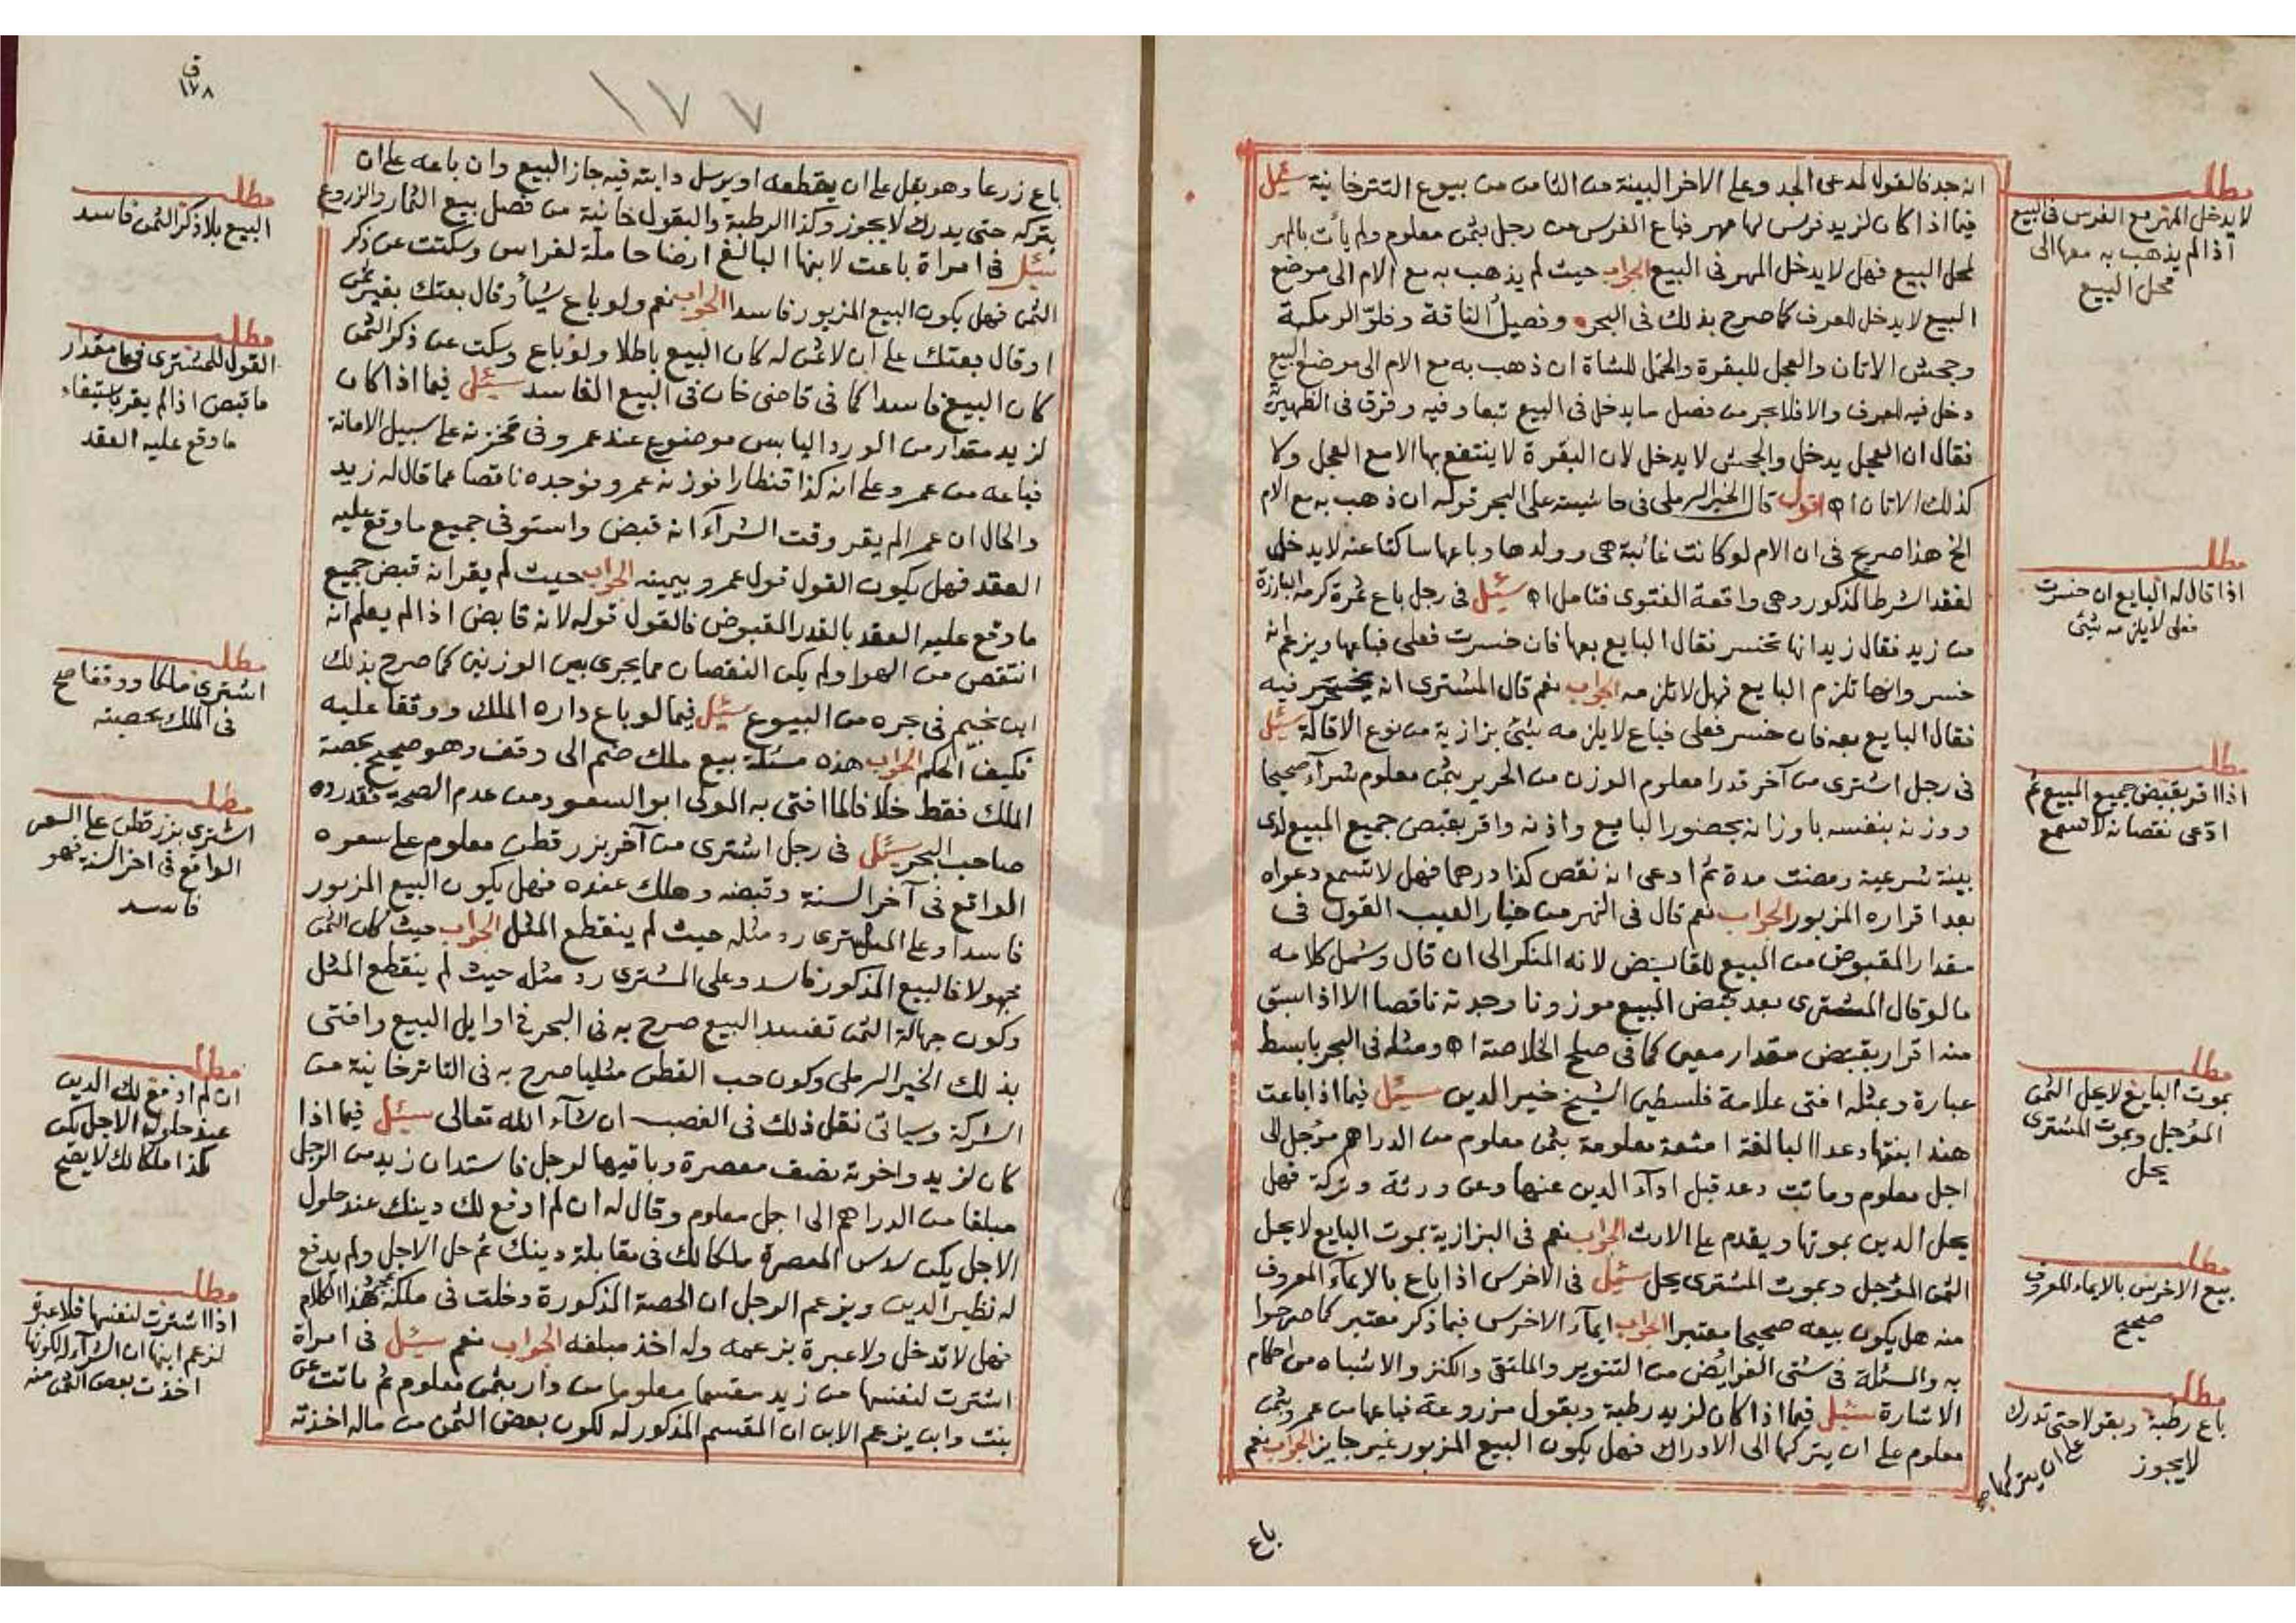 انه جد فالقول لمدعى الجد وعلى الاخر البينة من الثامن من بيوع التترخانية سئل
فيما اذا كان لزيد فرس لها مهر فباع الفرس من رجل بثمن معلوم ولم يأت بالمهر
لمحل البيع فهل لا يدخل المهر فى البيع الجواب حيث لم يذهب به مع الام الى موضع
البيع لا يدخل للعرف كما صرح بذلك فى البحر وفصيل الناقة وفلو الرمكة
وجحش الاتان والعجل للبقرة والحمل للشاة ان ذهب به مع الام الى موضع البيع
دخل فيه للعرف والا فلا بحر من فصل ما يدخل فى البيع تبعا وفيه وفرق فى الظهيرية
فقال ان العجل يدخل والجحش لا يدخل لان البقرة لا ينتفع بها الا مع العجل ولا
كذلك الاتان اه اقول قال الخير الرملى فى حاشيته على البحر قوله ان ذهب به مع الام
الخ هذا صريح فى ان الام لو كانت غائبة هى وولدها وباعها ساكتا عنه لا يدخل
لفقد الشرط المذكور وهى واقعة الفتوى فتامل اه سئل فى رجل باع ثمرة كرمه البارزة
من زيد فقال زيد انها تخسر فقال البايع بعها فان خسرت فعلى فباعها ويزعم انه
خسر وانها تلزم البايع فهل لا تلزمه الجواب نعم قال المشترى انه يخسر فيه
فقال البايع بعه فان خسر فعلى فباع لا يلزمه شئ بزازية من نوع الاقالة سئل
فى رجل اشترى من آخر قدرا معلوم الوزن من الحرير بثمن معلوم شرآء صحيحا
ووزنه بنفسه باوزانه بحضور البايع واذنه واقر بقبض جميع المبيع لدى
بينة شرعية ومضت مدة ثم ادعى انه نقص كذا درهما فهل لا تسمع دعواه
بعد اقراره المزبور الجواب نعم قال فى النهر من خيار العيب القول فى
مقدار المقبوض من المبيع للقابض لانه المنكر الى ان قال وشمل كلامه
ما لو قال المشترى بعد قبض المبيع موزونا وجدته ناقصا الا اذا سبق
منه اقرار بقبض مقدار معين كما فى صلح الخلاصة اه ومثله فى البحر بابسط
عبارة وبمثله افتى علامة فلسطين الشيخ خير الدين سئل فيما اذا باعت
هند ابنتها دعد البالغة امتعة معلومة بثمن معلوم من الدراهم مؤجل الى
اجل معلوم وماتت دعد قبل ادآء الدين عنها وعن ورثة وتركة فهل
يحل الدين بموتها ويقدم على الارث الجواب نعم فى البزازية بموت البايع لا يحل
الثمن المؤجل وبموت المشترى يحل سئل فى الاخرس اذا باع بالايمآء المعروف
منه هل يكون بيعه صحيحا معتبرا الجواب ايمآء الاخرس فيما ذكر معتبر كما صرحوا
به والمسئلة فى شتى الفرائض من التنوير والملتقى والكنز والاشباه من احكام
الاشارة سئل فيما اذا كان لزيد رطبة وبقول مزروعة فباعها من عمرو بثمن
معلوم على ان يتركها الى الادراك فهل يكون البيع المزبور غير جايز الجواب نعم
باع
مطلب
لا يدخل المهر مع الفرس فى البيع
اذا لم يذهب به معها الى
محل البيع
مطلب
اذا قال له البايع ان خسرت
فعلى لا يلزمه شئ
مطلب
اذا اقر بقبض جميع المبيع ثم
ادعى نقصانه لا تسمع
مطلب
بموت البايع لا يحل الثمن
المؤجل وبموت المشترى
يحل
مطلب
بيع الاخرس بالايماء المعروف
صحيح
مطلب
باع رطبة وبقولا حتى تدرك
لا يجوز
على ان يتركها
ق
١٧٨
١٧٧
باع زرعا وهو بقل على ان يقطعه او يرسل دابته فيه جاز البيع وان باعه على ان
يتركه حتى يدرك لا يجوز وكذا الرطبة والبقول خانية من فصل بيع الثمار والزروع
سئل فى امراة باعت لابنها البالغ ارضا حاملة لغراس وسكتت عن ذكر
الثمن فهل يكون البيع المزبور فاسدا الجواب نعم ولو باع شيأ وقال بعتك بغير ثمن
او قال بعتك على ان لا ثمن له كان البيع باطلا ولو باع وسكت عن ذكر الثمن
كان البيع فاسدا كما فى قاضى خان فى البيع الفاسد سئل فيما اذا كان
لزيد مقدار من الورد اليابس موضوع عند عمرو فى مخزنه على سبيل الامانة
فباعه من عمرو على انه كذا قنطارا فوزنه عمرو فوجده ناقصا عما قال له زيد
والحال ان عمرا لم يقر وقت الشرآء انه قبض واستوفى جميع ما وقع عليه
العقد فهل يكون القول قول عمرو بيمينه الجواب حيث لم يقر انه قبض جميع
ما وقع عليه العقد بالقدر المقبوض فالقول قوله لانه قابض اذا لم يعلم انه
انتقص من الهوا ولم يكن النقصان مما يجرى بين الوزنين كما صرح بذلك
ابن نجيم فى بحره من البيوع سئل فيما لو باع داره الملك ووقفا عليه
فكيف الحكم الجواب هذه مسئلة بيع ملك ضم الى وقف وهو صحيح بحصة
الملك فقط خلافا لما افتى به المولى ابو السعود ومن عدم الصحة فقد رده
صاحب البحر سئل فى رجل اشترى من آخر بزر قطن معلوم على سعره
الواقع فى آخر السنة وقبضه وهلك عنده فهل يكون البيع المزبور
فاسدا وعلى المشترى رد مثله حيث لم ينقطع المثل الجواب حيث كان الثمن
مجهولا فالبيع المذكور فاسد وعلى المشترى رد مثله حيث لم ينقطع المثل
وكون جهالة الثمن تفسد البيع صرح به فى البحر فى اوايل البيع وافتى
بذلك الخير الرملى وكون حب القطن مثليا صرح به فى التاترخانية من
الشركة وسياتى نقل ذلك فى الغصب ان شآء الله تعالى سئل فيما اذا
كان لزيد واخوته نصف معصرة وباقيها لرجل فاستدان زيد من الرجل
مبلغا من الدراهم الى اجل معلوم وقال له ان لم ادفع لك دينك عند حلول
الاجل يكن سدس المعصرة ملكا لك فى مقابلة دينك ثم حل الاجل ولم يدفع
له نظير الدين ويزعم الرجل ان الحصة المذكورة دخلت فى ملكه بمجرد هذا الكلام
فهل لا تدخل ولا عبرة بزعمه وله اخذ مبلغه الجواب نعم سئل فى امراة
اشترت لنفسها من زيد مقسما معلوما من دار بثمن معلوم ثم ماتت عن
بنت وابن يزعم الابن ان المقسم المذكور له لكون بعض الثمن من ماله اخذته
مطلب
البيع بلا ذكر الثمن فاسد
مطلب
القول للمشترى فيما مقدار
ما قبض اذا لم يقر باستيفاء
ما وقع عليه العقد
مطلب
اشترى ملكا ووقفا صح
فى الملك بحصته
مطلب
اشترى بزر قطن على السعر
الواقع فى اخر السنة فهو
فاسد
مطلب
ان لم ادفع لك الدين
عند حلول الاجل يكن
كذا ملكا لك لا يصح
مطلب
اذا اشترت لنفسها فلا عبرة
لزعم ابنها ان الشرآء له لكونها
اخذت بعض الثمن منه